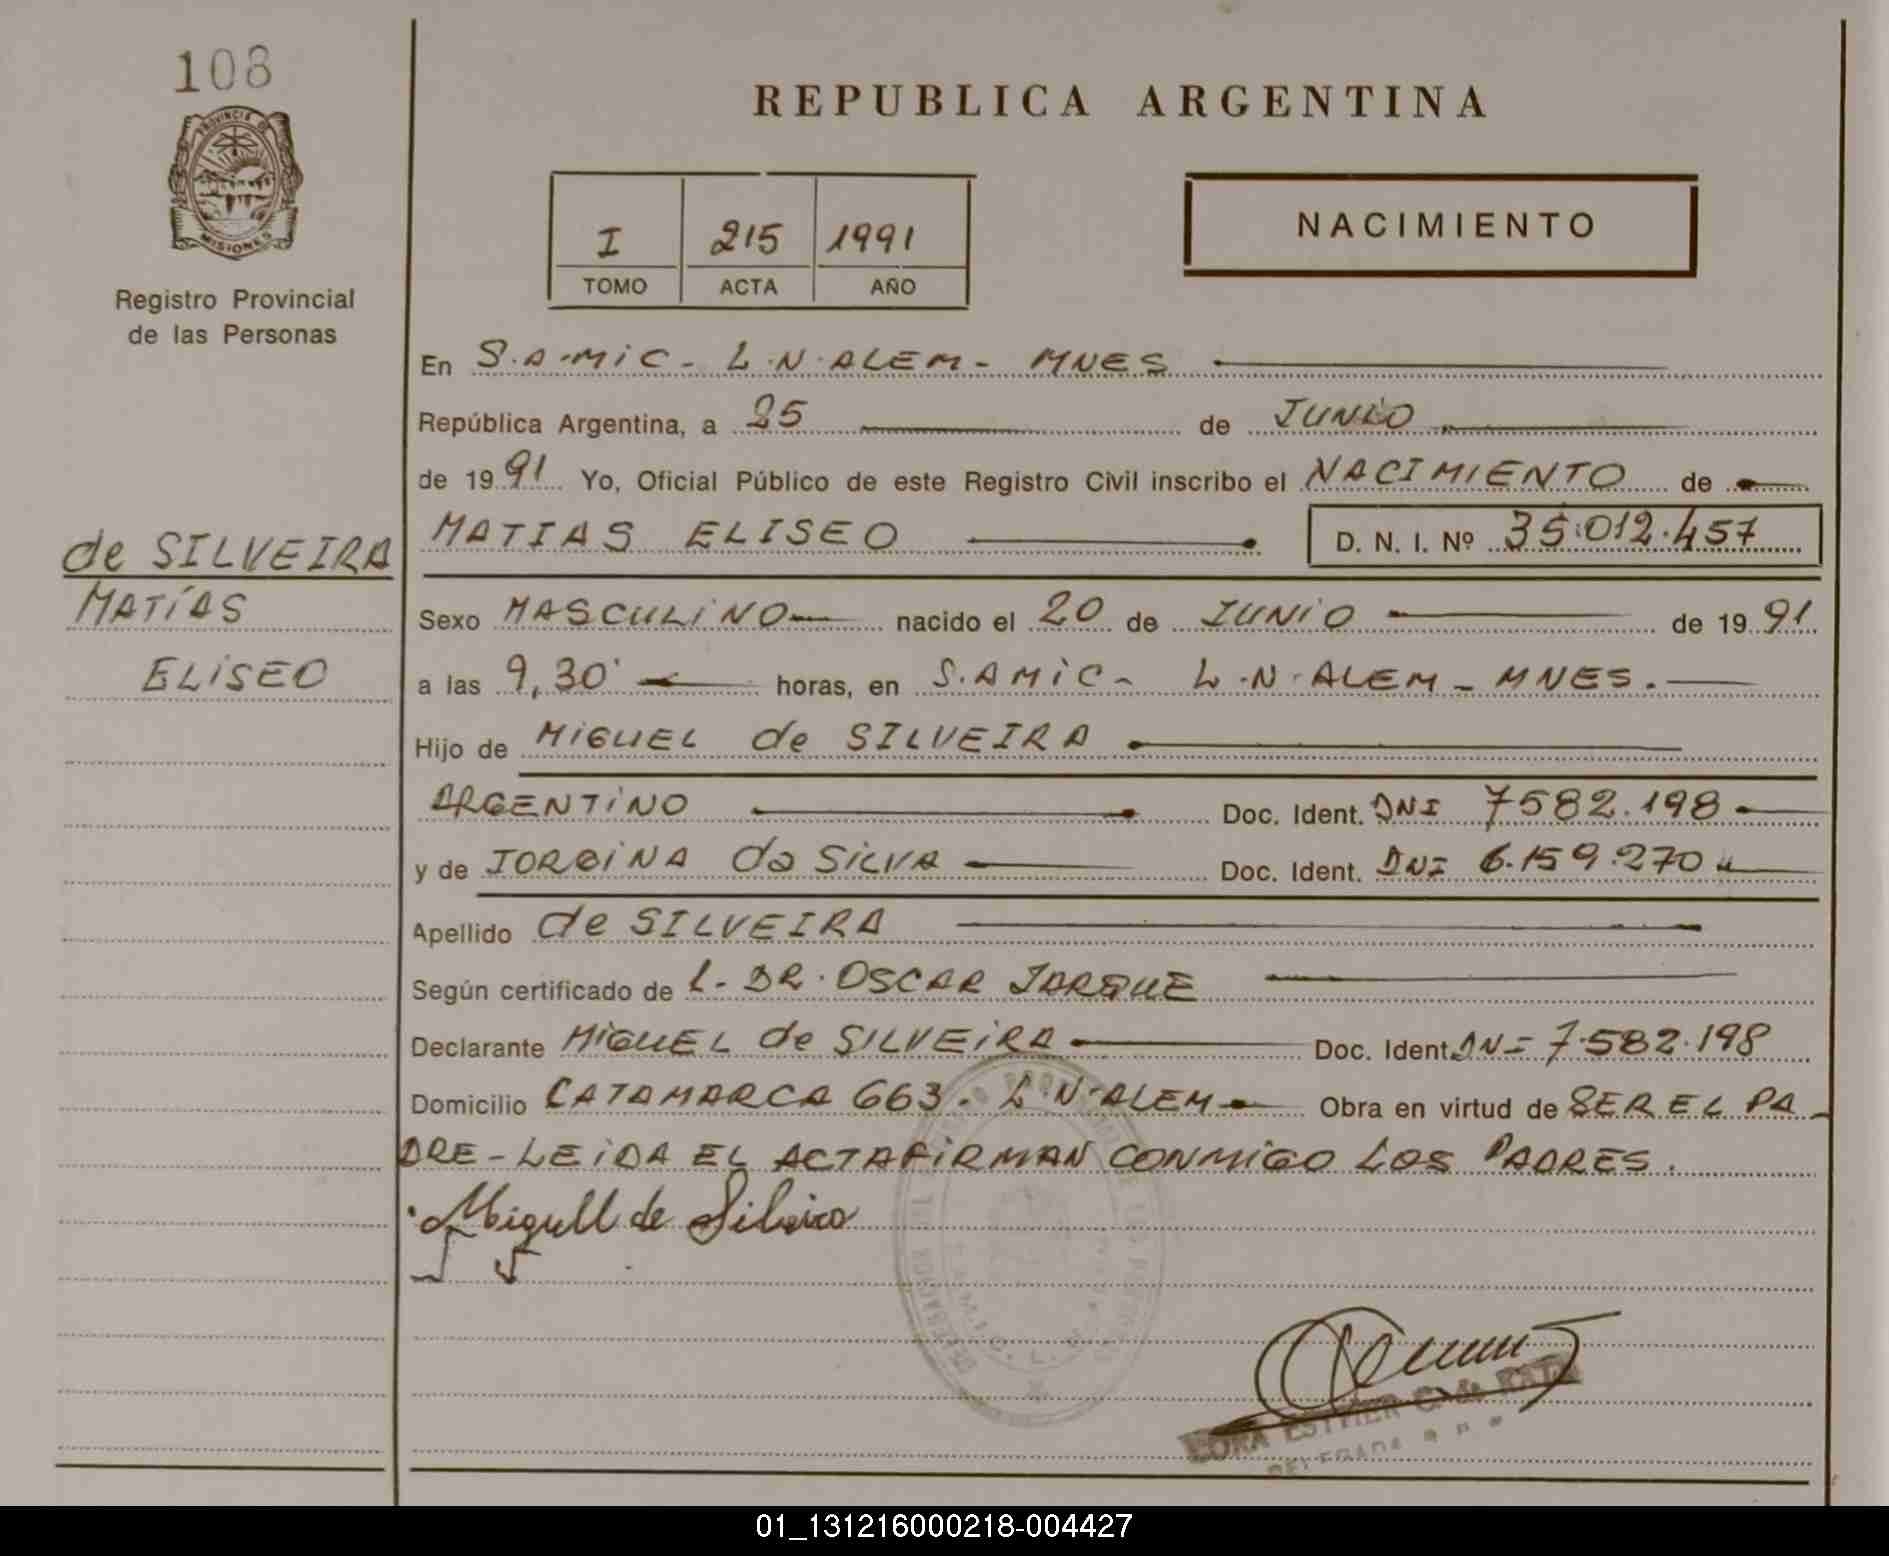 108
PROVINCIA DE
MISIONES
Registro Provincial
de las Personas
REPUBLICA ARGENTINA
I 215 1991
TOMO ACTA AÑO
NACIMIENTO
En S.A.MIC - L.N.ALEM - MNES
República Argentina, a 25 de JUNIO
de 1991 Yo, Oficial Público de este Registro Civil inscribo el NACIMIENTO de
MATIAS ELISEO D. N. I. Nº 35.012.457
de SILVEIRA
MATÍAS
ELISEO
Sexo MASCULINO nacido el 20 de JUNIO de 1991
a las 9,30 horas, en S.AMIC - L.N.ALEM - MNES.
Hijo de MIGUEL de SILVEIRA
ARGENTINO Doc. Ident. DNI 7582.198
y de da SILVA Doc. Ident. DNI 6.159.270
Apellido de SILVEIRA
Según certificado de L. DR. OSCAR JARQUE
Declarante MIGUEL de SILVEIRA Doc. Ident. DNI 7.582.198
Domicilio CATAMARCA 663. L.N.ALEM Obra en virtud de SER EL PA-
DRE - LEIDA EL ACTA FIRMAN CONMIGO LOS PADRES.
Miguell de Silveira
ESTHER C. de
DELEGADA
01_131216000218-004427